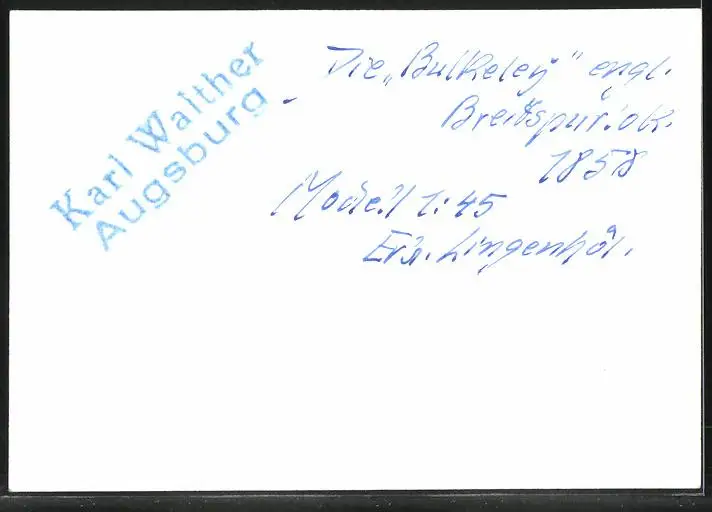 Karl Walther
Augsburg
Die „Bulkeley" engl.
Breitspurlok.
1858
Modell 1:45
Lingenhöl.